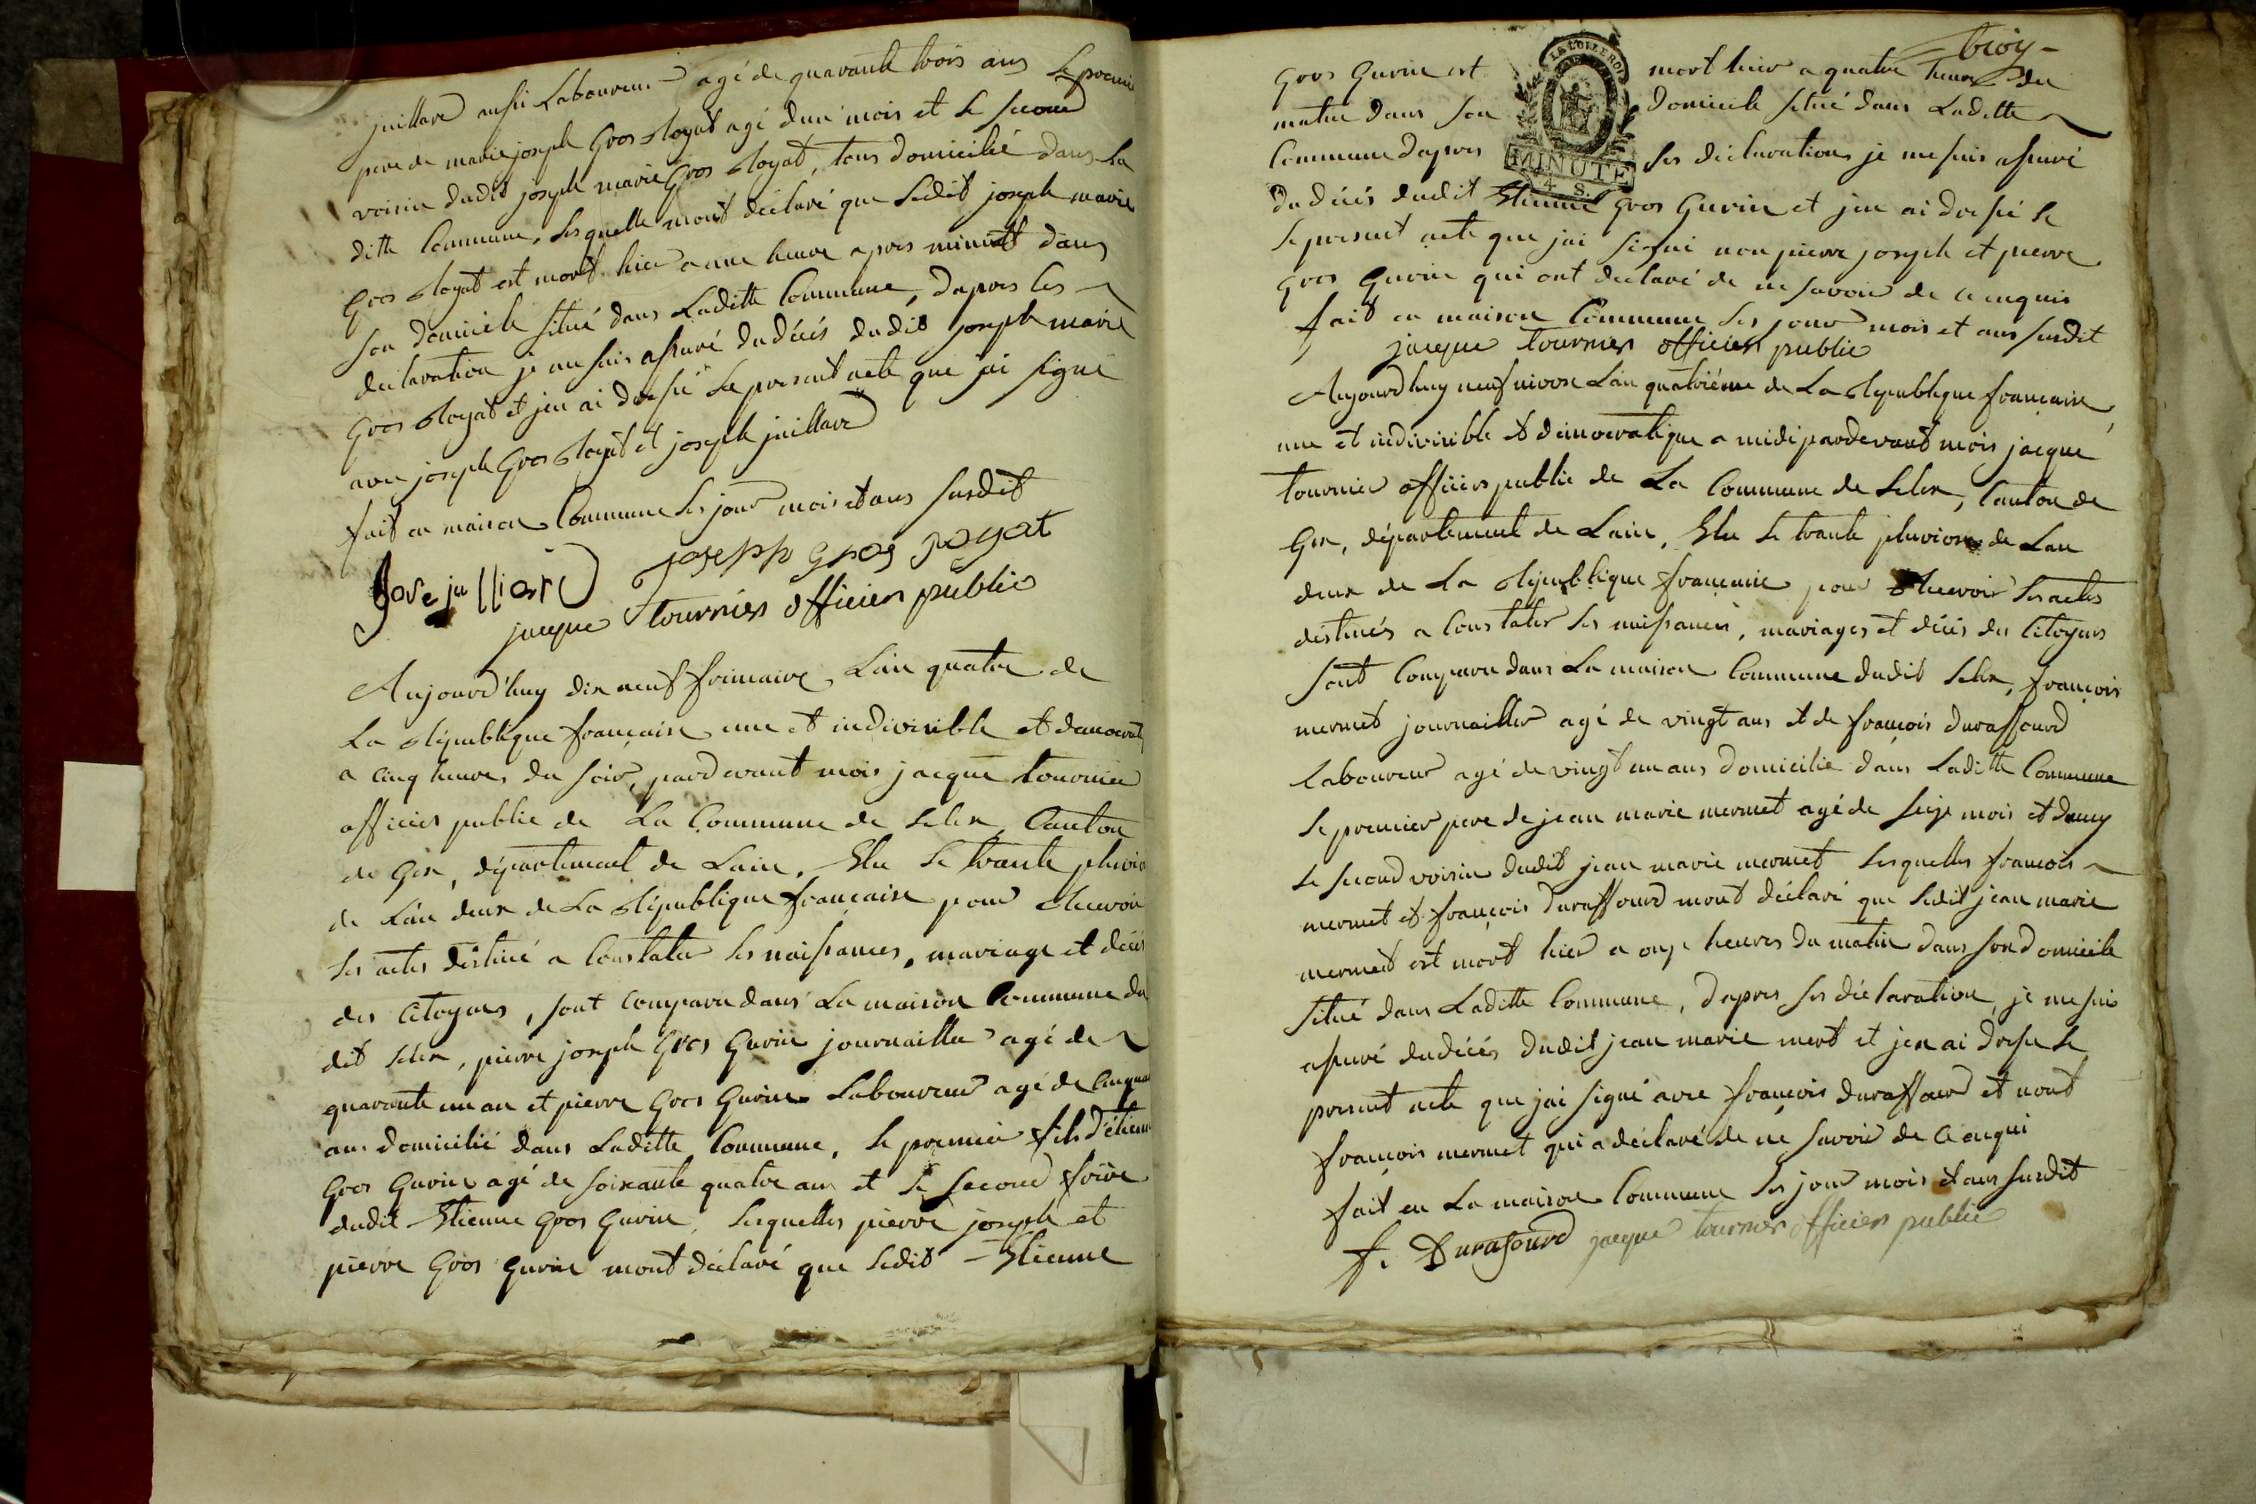 juillard aussi Laboureur agé de quarante trois ans Le premie
pere de marie joseph Gros Royat agé dun mois et le second
voisin dudit joseph marie Gros Royat, tous domicilié dans La
ditte Commune, Lesquelle mont déclaré que Ledit joseph marie
Gros Royat est mort hier a une heure apres minuit dans
son domicile situé dans Laditte Commune, dapres les
declaration je me suis assuré du décés dudit joseph marie
Gros Royat et jen ai dressé Le present acte que jai signé
avec joseph Gros Royat et joseph juillard
fait en maison Commune Les jour mois et ans susdit
Jose julliard joseph gros royat
jacque tournier officier public
Aujourd'huy dix neuf frimaire Lan quatre de
La République française une et indivisible et democrati
a cinq heures du soir, pardevant mois jacque tournier
officier public de La Commune de Lelex Canton
de Gex, département de Lain, Elu Le trante pluvio
de Lan deux de La République française pour Recevoir
Les actes destiné a Constater Les naissances, mariage et décés
des Citoyens, sont Comparu dans La maison Commune du
dit Lelex, pierre joseph Gros Gurin journailler agé de
quarante un an et pierre Gros Gurin Laboureur agé de Cinquan
ans domicilié dans Laditte Commune, Le premier fils d'étienn
Gros Gurin agé de soixante quatre ans et Le second frère
dudit Etienne Gros Gurin, Lesquelles pierre joseph et
pierre Gros Gurin mont déclaré que Ledit Etienne
troiz
Gros Gurin est mort hier a quatre heure du
matin dans son domicile situé dans Laditte
Commune dapres Les déclarations je me suis assuré
du décés dudit Etienne Gros Gurin et jen ai dressé le
Le present acte que jai signé non pierre joseph et pierre
Gros Gurin qui ont declaré de ne savoir de ce enquis
fait en maison Commune Les jour mois et ans susdit
jacque tournier officier public
LA LOI LE ROI
MINUTE
4 S.
Aujourdhuy neuf nivose Lan quatriéme de La République française
une et indivisible et démocratique a midi pardevant mois jacque
tournier officier public de La Commune de Lelex, Canton de
Gex, département de Lain, Elu Le trante pluviose de Lan
deux de La République française pour Recevoir Les actes
destinés a Constater Les naissances, mariages et décés des Citoyens
sont Comparu dans La maison Commune dudit Lelex, françois
mermet journailler agé de vingt ans et de françois duraffourd
Laboureur agé de vingt un ans domicilié dans Laditte Commune
Le premier pere de jean marie mermet agé de seize mois et demy
Le second voisin dudit jean marie mermet Lesquelles francois
mermet et françois duraffourd mont déclaré que Ledit jean marie
mermet est mort hier a onze heures du matin dans son domicile
situé dans Laditte Commune, dapres Les déclaration, je me suis
assuré du décés dudit jean marie mert et jen ai dressé Le
present acte que jai signé avec françois duraffourd et nont
françois mermet qui a déclaré de ne savoir de ce enqui
fait en La maison Commune Les jour mois et ans susdit
f. Durafourd jacque tournier officier public